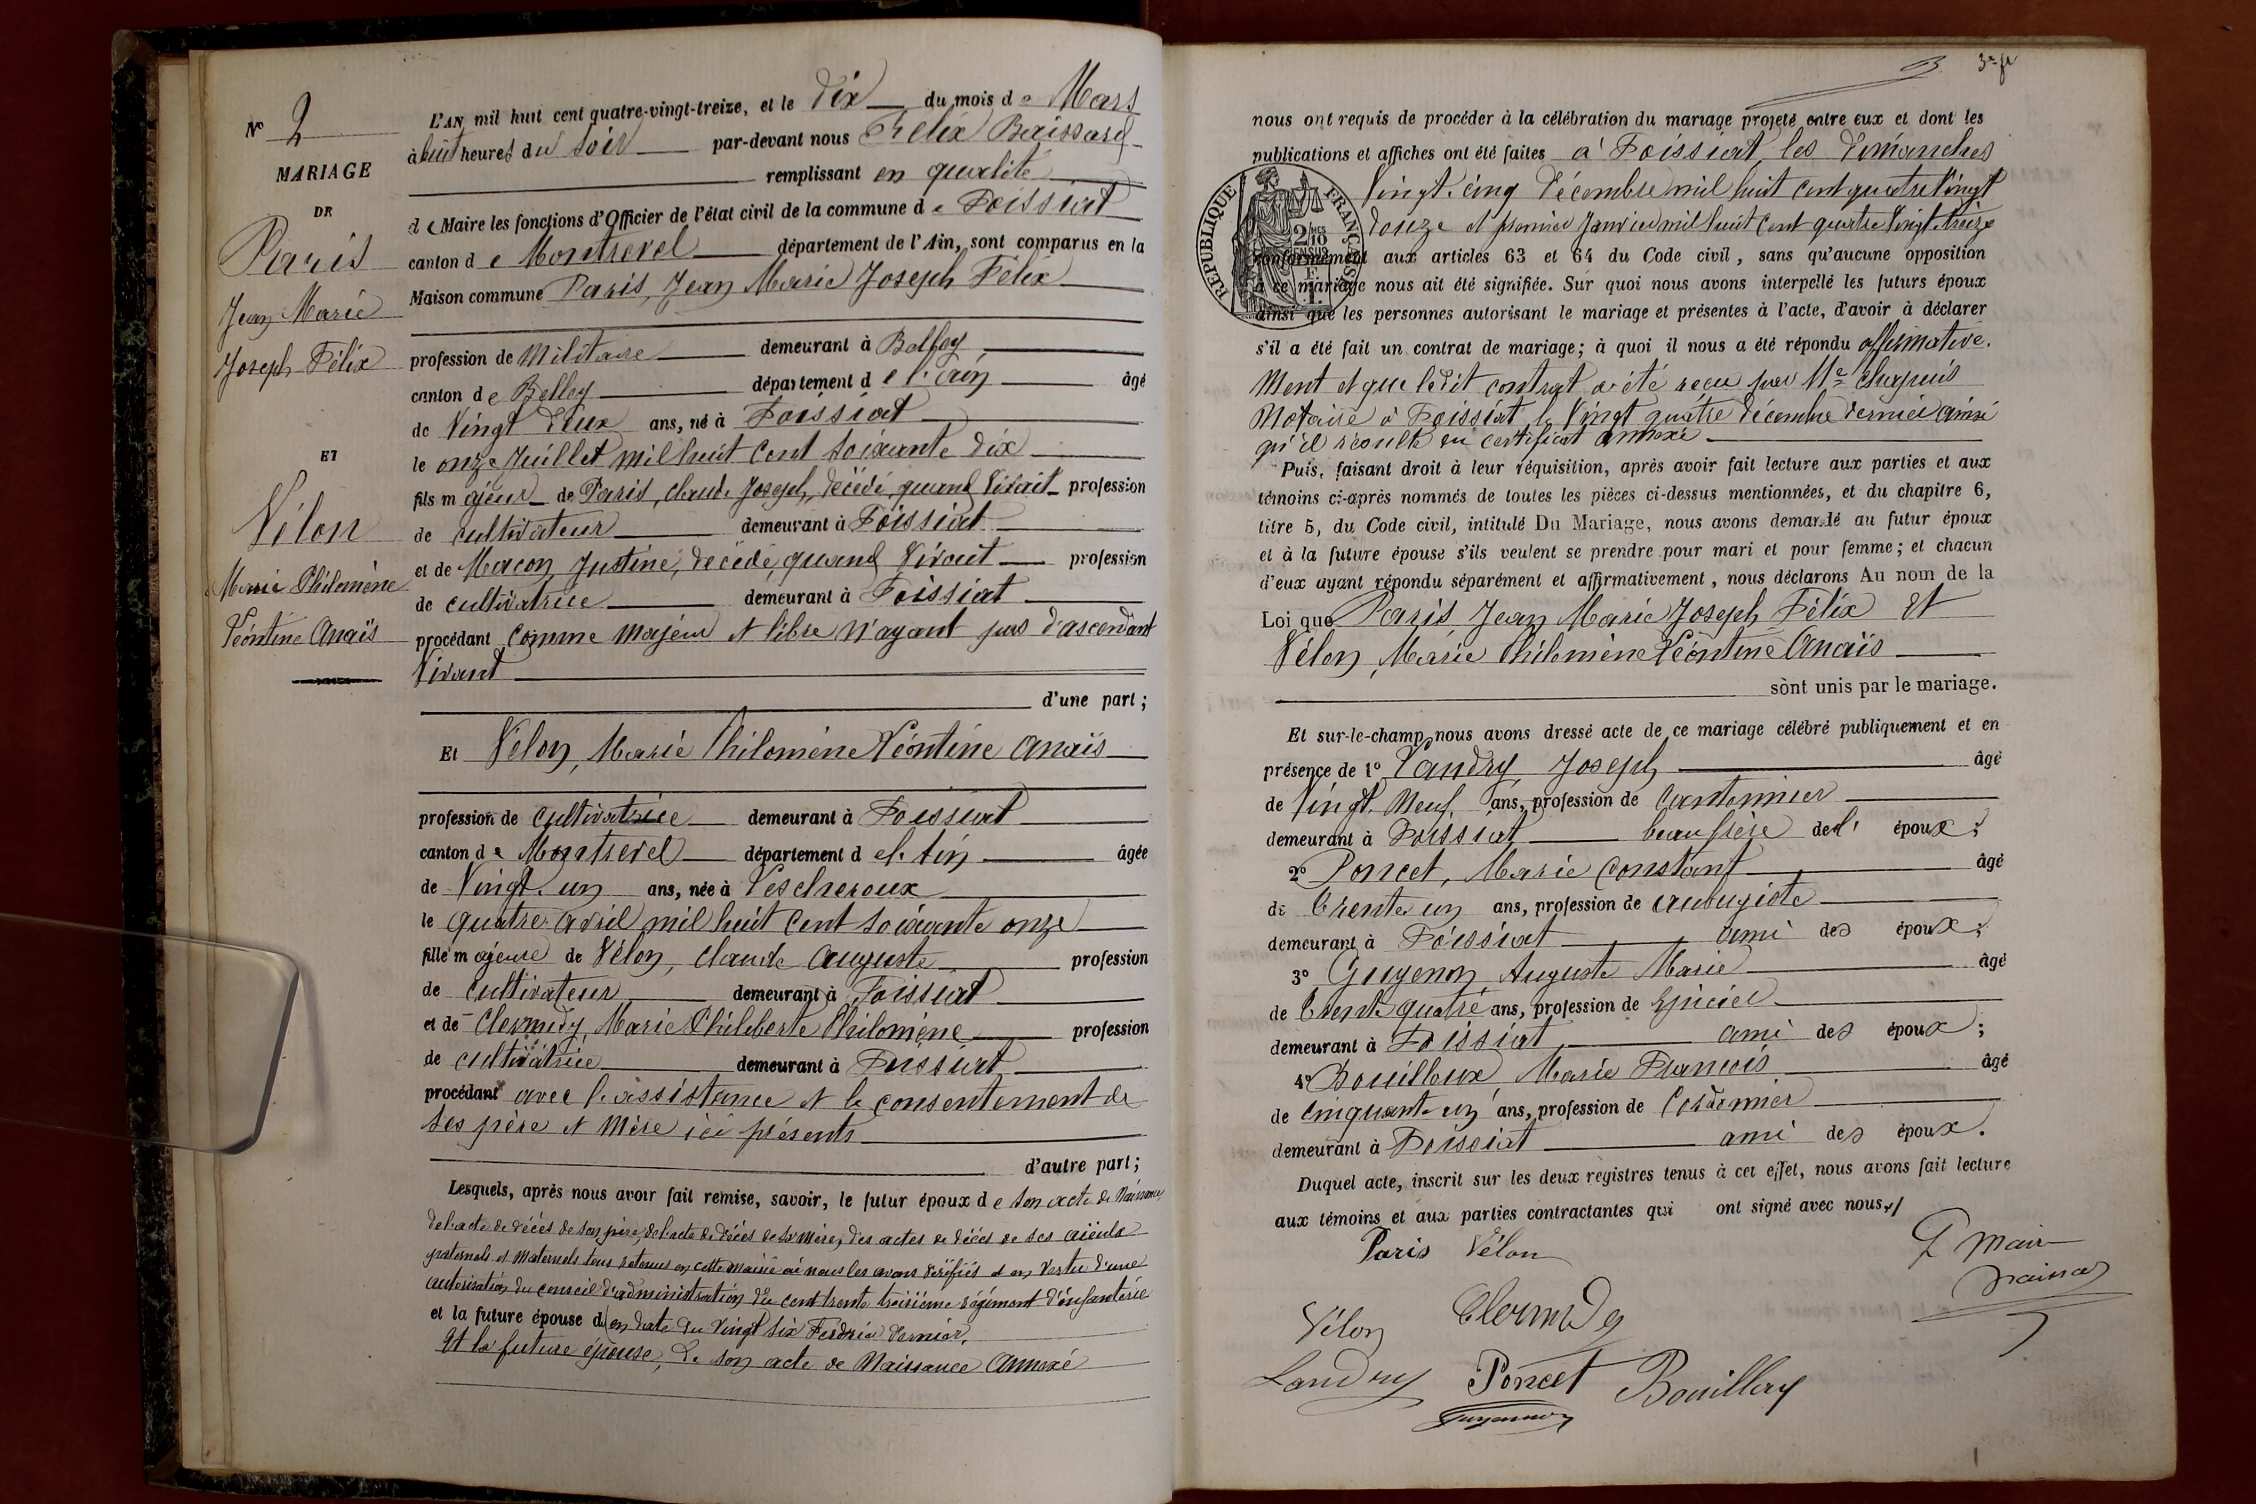 N° 2
MARIAGE
DE
Paris
Jean Marie
Joseph Félix
ET
Vélon
Marie Philomène
Léontine Anaïs
L'AN mil huit cent quatre-vingt-treize, et le Dix du mois de Mars
à huit heures du soir par-devant nous Félix
remplissant en qualité
de Maire les fonctions d'Officier de l'état civil de la commune de Foissiat
canton de Montrevel département de l'Ain, sont comparus en la
Maison commune Paris, Jean Marie Joseph Félix
profession de Militaire demeurant à Belley
canton de Belley département de l'ain âgé
de Vingt deux ans, né à Foissiat
le onze Juillet mil huit Cent soixante dix
fils majeur de Paris, claude Joseph, décédé, quand Vivait profession
de cultivateur demeurant à Foissiat
et de Macon Justine, décédé, quand Vivait profession
de cultivatrice demeurant à Foissiat
procédant comme majeur et libre n'ayant pas d'ascendant
Vivant
d'une part ;
Et Vélon, Marie Philomène Léontine Anaïs
profession de cultivatrice demeurant à Foissiat
canton de Montrevel département de l'Ain âgée
de Vingt un ans, née à Lescheroux
le quatre avril mil huit cent soixante onze
fille majeure de Vélon, Claude Auguste profession
de cultivateur demeurant à Foissiat
et de Clermidy, Marie Philiberte Philomène profession
de cultivatrice demeurant à Foissiat
procédant avec l'assistance et le consentement de
ses père et mère ici présents
d'autre part ;
Lesquels, après nous avoir fait remise, savoir, le futur époux de son acte de Naissance
de l'acte de décès de son père, de l'acte de décès de sa mère, des actes de décès de ses aïeuls
paternels et maternels tous retenus en cette mairie où nous les avons vérifiés et en Vertu d'une
autorisation du conseil d'administration du cent trente troisième régiment d'infanterie
et la future épouse d en date du vingt six Février dernier,
Et la future épouse, de son acte de Naissance annexé
3
nous ont requis de procéder à la célébration du mariage projeté entre eux et dont les
publications et affiches ont été faites à Foissiat, les Dimanches
Vingt-cinq Décembre mil huit cent quatre Vingt
Douze et premier Janvier mil huit Cent quatre Vingt treize
RÉPUBLIQUE FRANÇAISE
conformément aux articles 63 et 64 du Code civil, sans qu'aucune opposition
à ce mariage nous ait été signifiée. Sur quoi nous avons interpellé les futurs époux
ainsi que les personnes autorisant le mariage et présentes à l'acte, d'avoir à déclarer
s'il a été fait un contrat de mariage ; à quoi il nous a été répondu affirmative.
Ment et que ledit contrat a été reçu par Me Chapuis
Notaire à Foissiat le Vingt quatre Décembre dernier ainsi
qu'il résulte du certificat annexé
Puis, faisant droit à leur réquisition, après avoir fait lecture aux parties et aux
témoins ci-après nommés de toutes les pièces ci-dessus mentionnées, et du chapitre 6,
titre 5, du Code civil, intitulé Du Mariage, nous avons demandé au futur époux
et à la future épouse s'ils veulent se prendre pour mari et pour femme ; et chacun
d'eux ayant répondu séparément et affirmativement, nous déclarons Au nom de la
Loi que Paris Jean Marie Joseph Félix Et
Vélon, Marie Philomène Léontine Anaïs
sont unis par le mariage.
Et sur-le-champ nous avons dressé acte de ce mariage célébré publiquement et en
présence de 1° Landry Joseph âgé
de Vingt Neuf ans, profession de Cantonnier
demeurant à Foissiat beau frère de l' époux ;
2° Poncet, Marie Constant âgé
de trente un ans, profession de aubergiste
demeurant à Foissiat ami des époux ;
3° Guyenon Auguste Marie âgé
de trente quatre ans, profession de Epicier
demeurant à Foissiat ami des époux ;
4° Bouilloux Marie François âgé
de Cinquante un ans, profession de Cordonnier
demeurant à Foissiat ami des époux.
Duquel acte, inscrit sur les deux registres tenus à cet effet, nous avons fait lecture
aux témoins et aux parties contractantes qui ont signé avec nous
Paris Vélon
Vélon
Landry Poncet